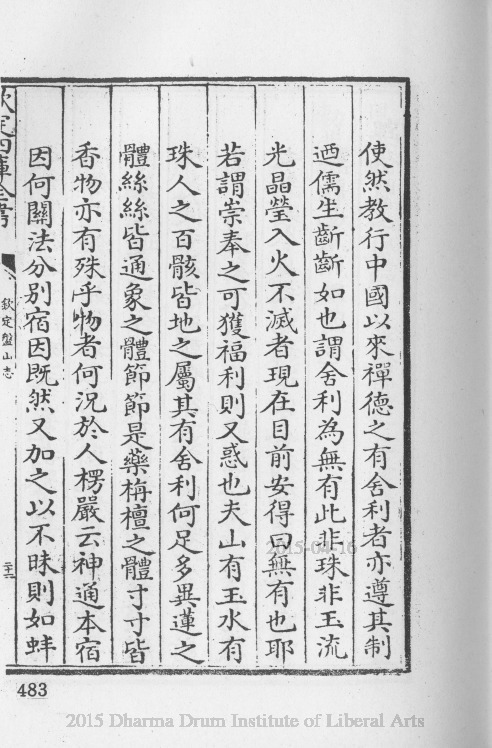 使然教行中國以來禪德之有舍利者亦遵其制
迺儒生齗齗如也謂舍利為無有此非珠非玉流
光晶瑩入火不滅者現在目前安得曰無有也耶
若謂崇奉之可獲福利則又惑也夫山有玉水有
珠人之百骸皆地之屬其有舍利何足多異蓮之
體絲絲皆通象之體節節是藥栴檀之體寸寸皆
香物亦有殊乎物者何況於人楞嚴云神通本宿
因何關法分別宿因既然又加之以不昧則如蚌
欽定四庫全書
欽定盤山志
483
2015-04-16
2015 Dharma Drum Institute of Liberal Arts